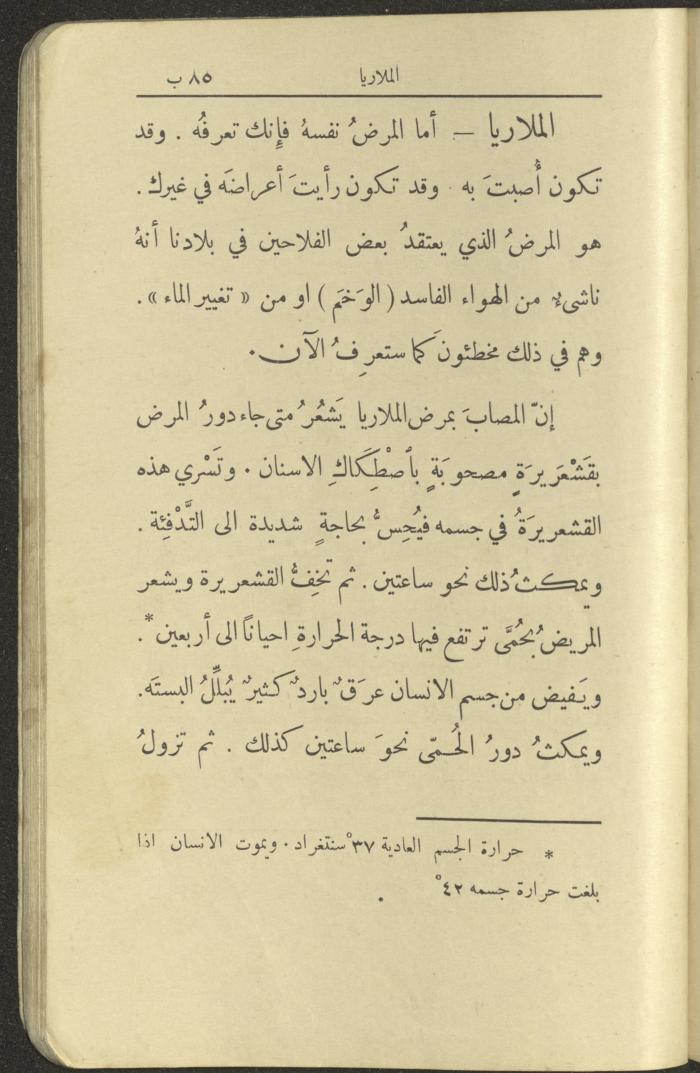 الملاريا ٨٥ ب
الملاريا — أما المرضُ نفسهُ فإنك تعرفُه . وقد
تكون أُصبتَ به . وقد تكون رأيتَ أعراضَه في غيرك .
هو المرضُ الذي يعتقدُ بعض الفلاحين في بلادنا أنهُ
ناشىءٌ من الهواء الفاسد ( الوَخَم ) او من « تغيير الماء » .
وهم في ذلك مخطئونَ كما ستعرِفُ الآن .
إنّ المصابَ بمرض الملاريا يَشعُرُ متى جاء دورُ المرض
بقَشْعَرِيرَةٍ مصحوبَةٍ بأصْطِكَاكِ الاسنان . وتَسْري هذه
القشعريرَةُ في جسمه فيُحِسُّ بحاجةٍ شديدة الى التَّدْفِئة .
ويمكثُ ذلك نحو ساعتين . ثم تخِفُّ القشعريرة ويشعر
المريضُ بحُمَّى ترتفع فيها درجة الحرارةِ احياناً الى أربعين * .
ويَفيض من جسم الانسان عرَقٌ باردٌ كثيرٌ يُبلِّلُ البستَه .
ويمكثُ دورُ الحُمّى نحوَ ساعتين كذلك . ثم تزولُ
* حرارة الجسم العادية ٣٧° سنتغراد . ويموت الانسان اذا
بلغت حرارة جسمه ٤٢° .